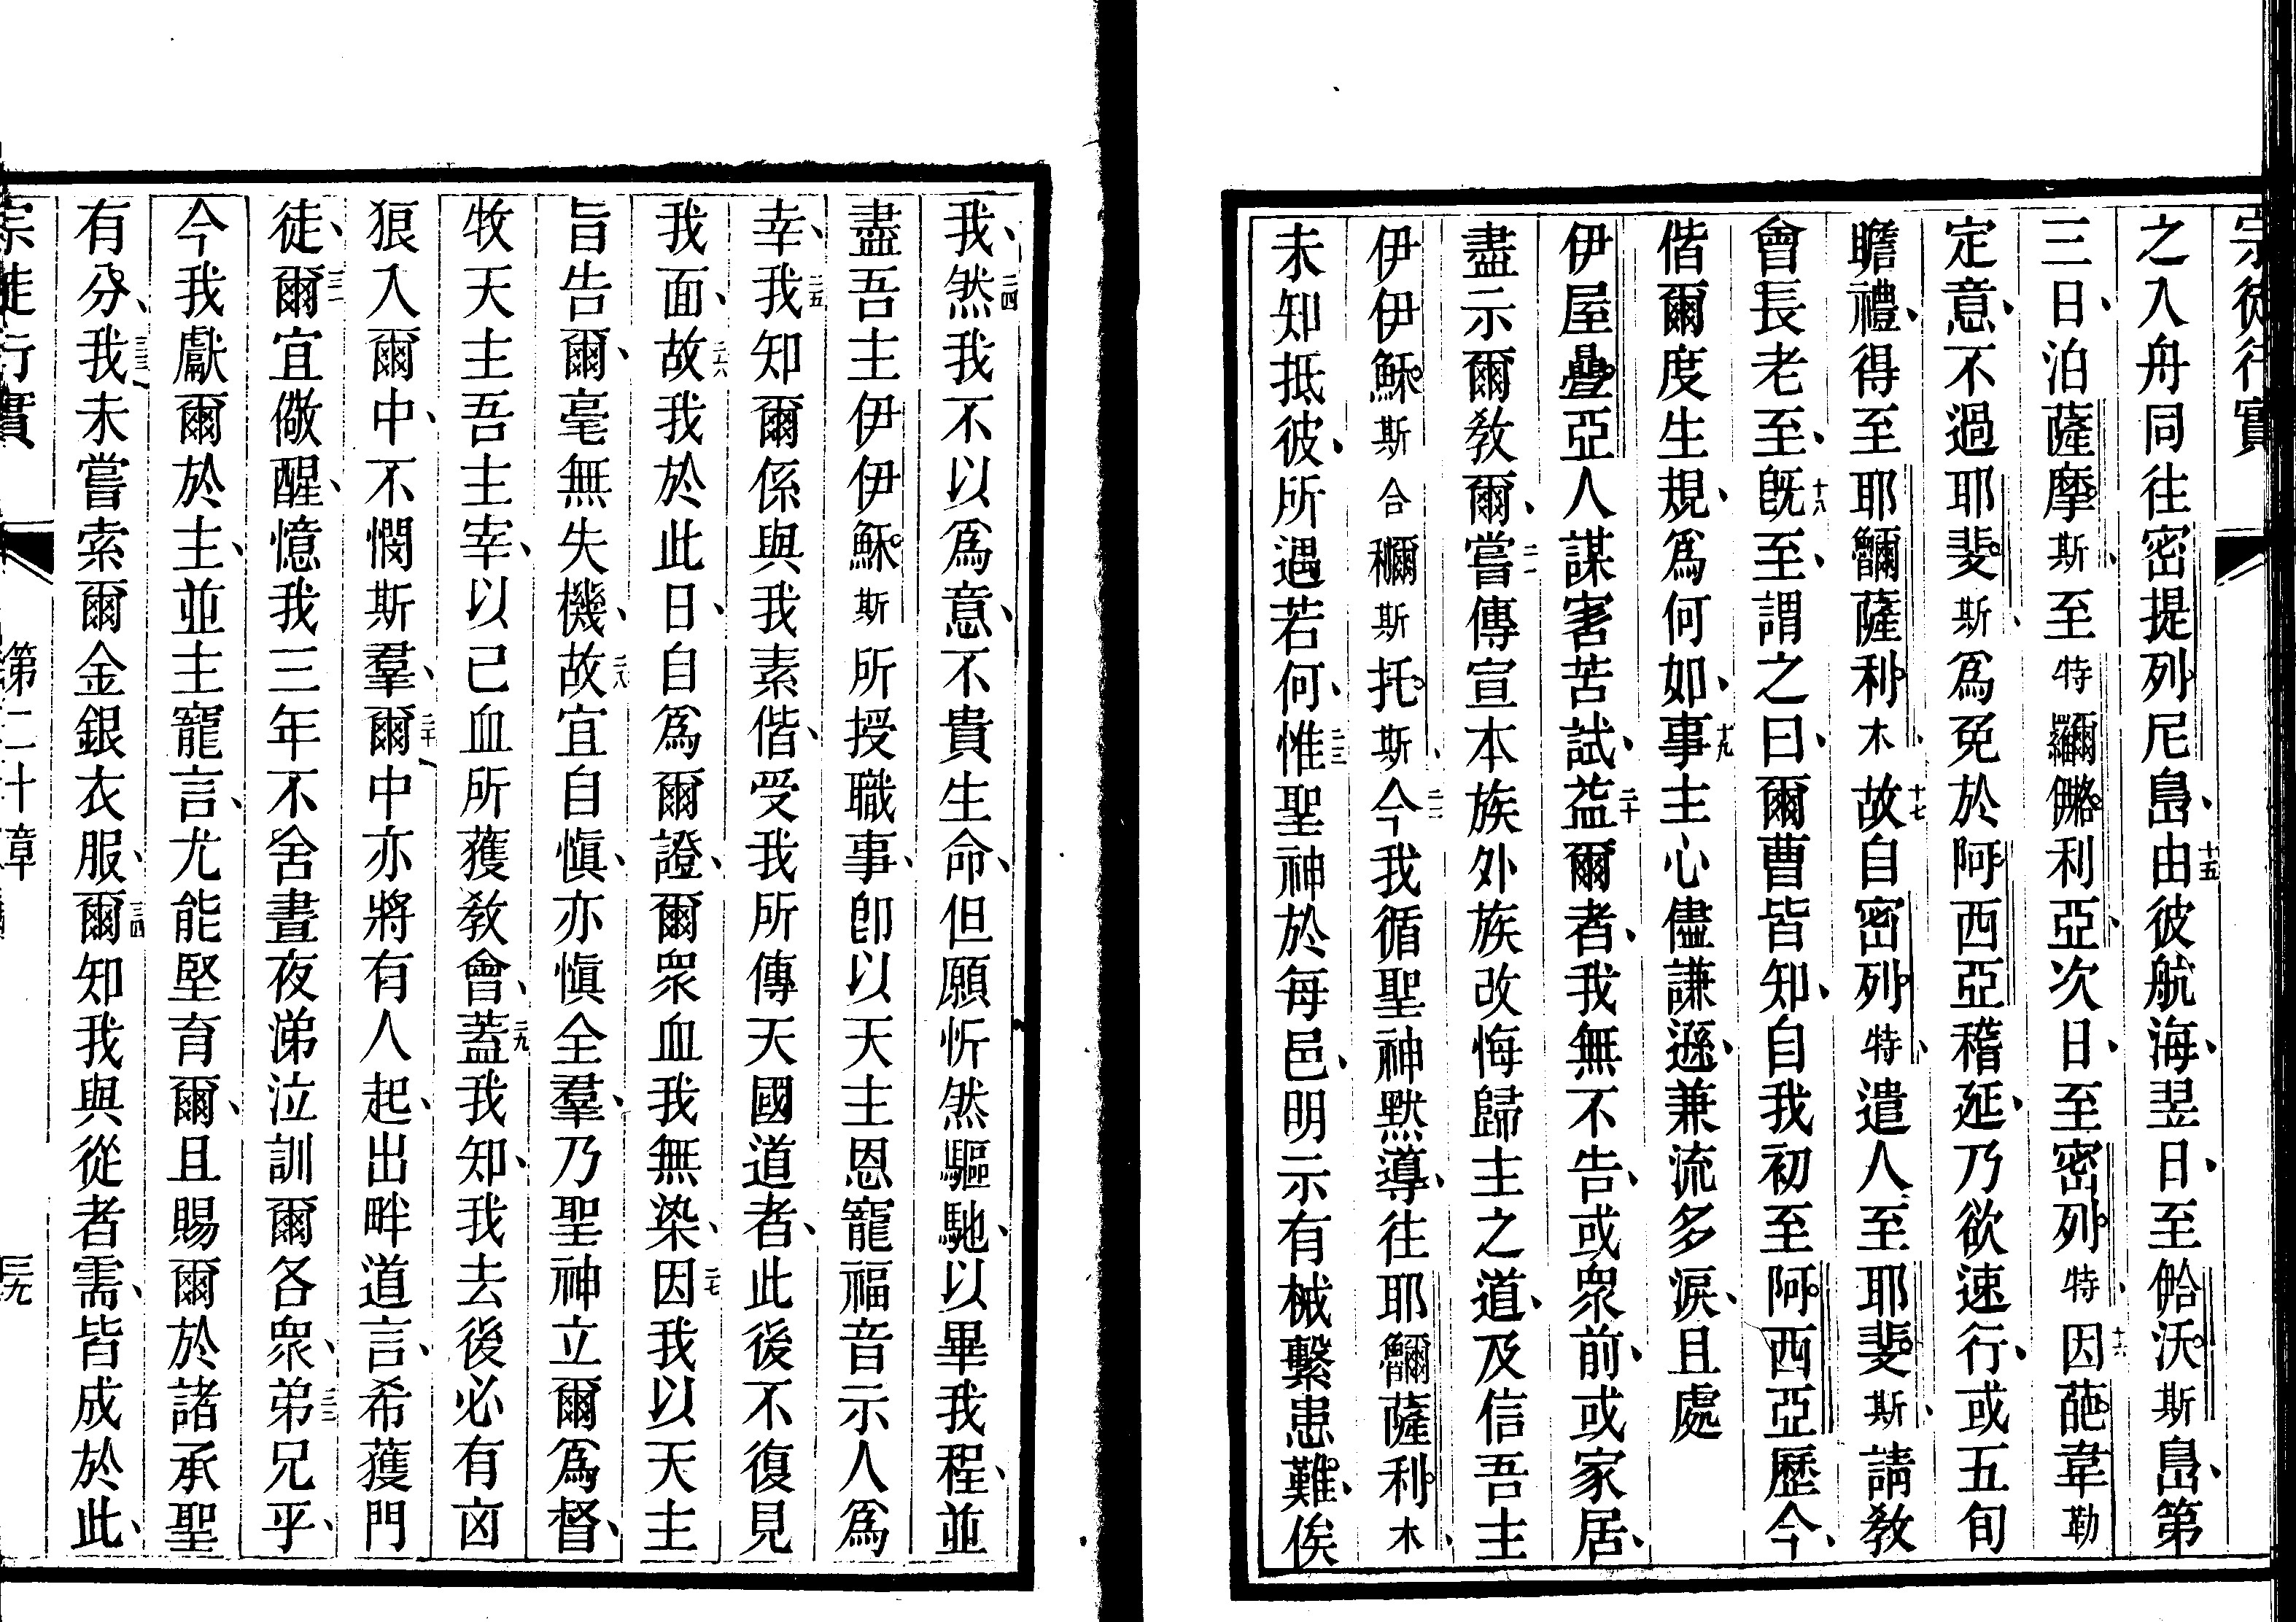 宗徒行實
之入舟同往密提列尼島、十五由彼航海、翌日、至𠌥沃斯島、第
三日、泊薩摩斯、至特羅爾𠌥利亞、次日、至密列特、十六因葩韋勒
定意、不過耶斐斯、爲免於阿西亞稽延、乃欲速行、或五旬
瞻禮、得至耶爾薩利木、十七故自密列特、遣人至耶斐斯、請教
會長老至、十八既至、謂之曰、爾曹皆知、自我初至阿西亞歷今、
偕爾度生規、爲何如、十九事主心儘謙遜、兼流多淚、且處
伊屋疊亞人謀害苦試、二十益爾者、我無不告、或衆前、或家居、
盡示爾教爾、二一嘗傳宣本族外族改悔歸主之道、及信吾主
伊伊穌斯合穪斯托斯、二二今我循聖神默導、往耶爾薩利木、
未知抵彼、所遇若何、二三惟聖神於每邑、明示有械繫患難、俟
我、二四然我不以爲意、不貴生命、但願忻然驅馳、以畢我程、並
盡吾主伊伊穌斯所授職事、卽以天主恩寵福音示人爲
幸、二五我知爾係與我素偕、受我所傳天國道者、此後不復見
我面、二六故我於此日、自爲爾證、爾衆血我無染、二七因我以天主
旨告爾、毫無失機、二八故宜自愼、亦愼全羣、乃聖神立爾爲督、
牧天主吾主宰、以己血所獲教會、二九蓋我知、我去後必有㐫
狼入爾中、不憫斯羣、三十爾中亦將有人起、出畔道言、希獲門
徒、三一爾宜儆醒、憶我三年不舍晝夜涕泣訓爾各衆、三二弟兄乎、
今我獻爾於主、並主寵言、尤能堅育爾、且賜爾於諸承聖
有分、三三我未嘗索爾金銀衣服、三四爾知我與從者需、皆成於此、
宗徒行實 第二十章 三九